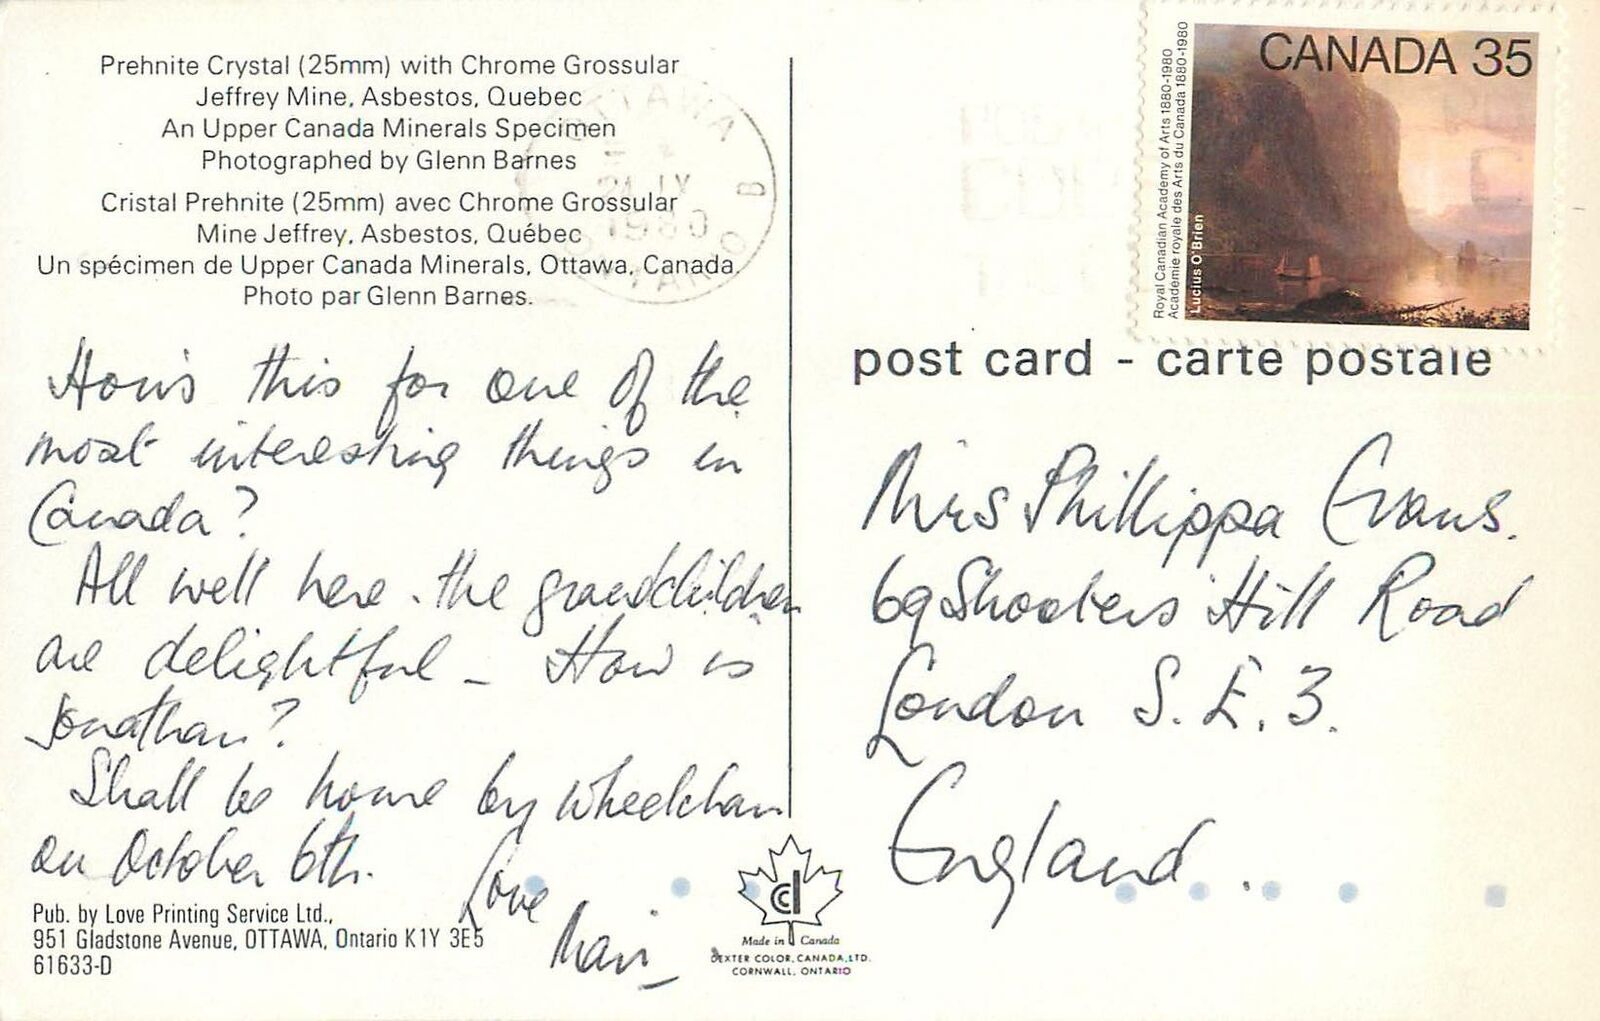 Prehnite Crystal (25mm) with Chrome Grossular
Jeffrey Mine, Asbestos, Quebec
An Upper Canada Minerals Specimen
Photographed by Glenn Barnes
Cristal Prehnite (25mm) avec Chrome Grossular
Mine Jeffrey, Asbestos, Québec
Un spécimen de Upper Canada Minerals, Ottawa, Canada.
Photo par Glenn Barnes.
How's this for one of the
most interesting things in
Canada?
All well here. the grandchildren
are delightful - How is
Jonathan?
Shall be home by wheelchair
on October 6th.
Love
Pub. by Love Printing Service Ltd.,
951 Gladstone Avenue, OTTAWA, Ontario K1Y 3E5
61633-D
Made in Canada
DEXTER COLOR, CANADA, LTD.
CORNWALL, ONTARIO
CANADA 35
Royal Canadian Academy of Arts 1880-1980
Académie royale des Arts du Canada 1880-1980
Lucius O'Brien
post card - carte postale
Mrs Phillippa Evans.
69 Shooters Hill Road
London S.E.3.
England...